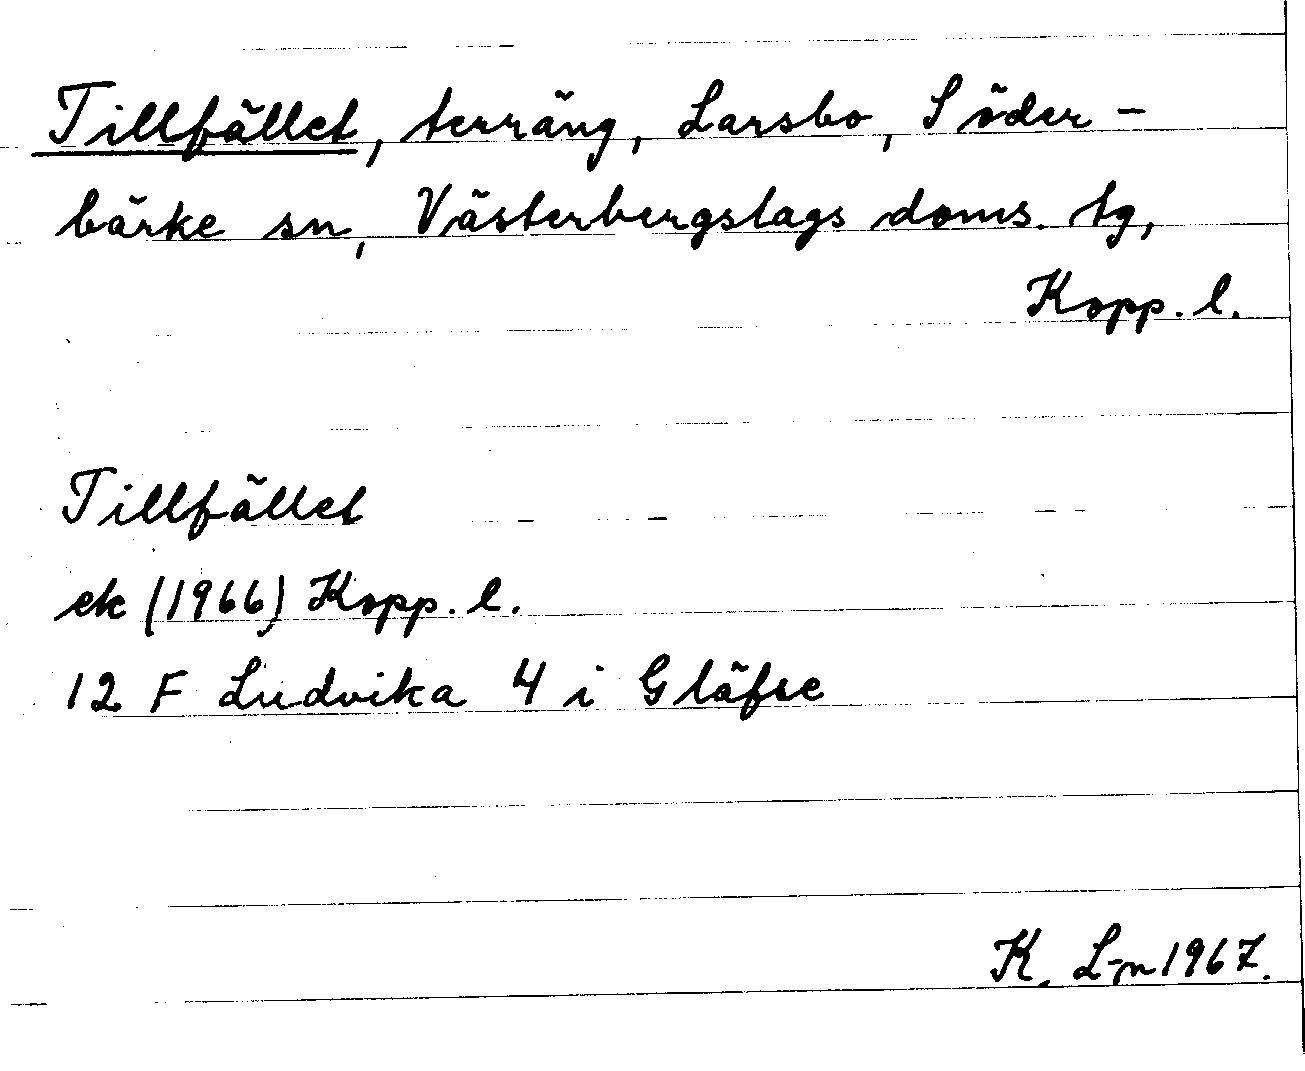 Tillfället, terräng, Larsbo, Söder-
bärke sn, Västerbergslags doms. tg,
Kopp. l.
Tillfället
ek (1966) Kopp. l.
12 F Ludvika 4 i Gläfse
K. L-n 1967.